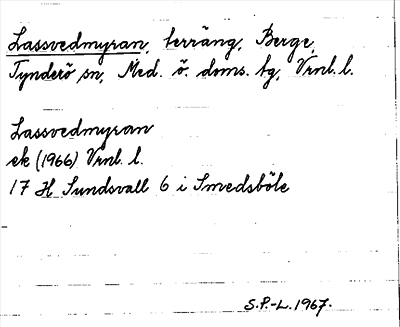 Lassvedmyran, terräng, Berge,
Tynderö sn, Med. ö. doms. tg, Vrnl. l.
Lassvedmyran
ek (1966) Vrnl. l.
17 H Sundsvall 6 i Smedsböle
S.P.-L. 1967.